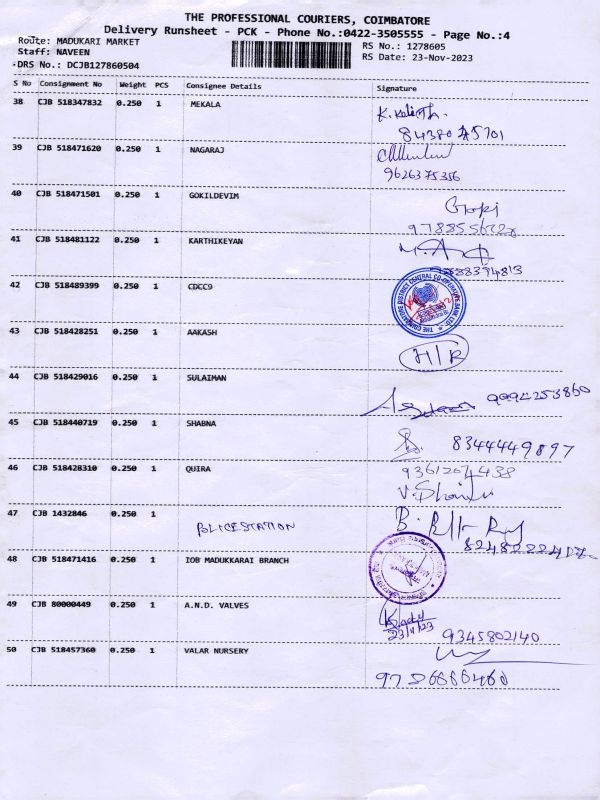 THE PROFESSIONAL COURIERS, COIMBATORE
Delivery Runsheet - PCK - Phone No.:0422-3505555 - Page No.:4
Route: MADUKARI MARKET
RS No.: 1278605
Staff: NAVEEN
RS Date: 23-Nov-2023
DRS No.: DCJB127860504
S No Consignment No Weight PCS Consignee Details Signature
38 CJB 518347832 0.250 1 MEKALA
39 CJB 518471620 0.250 1 NAGARAJ
9626375356
40 CJB 518471501 0.250 1 GOKILDEVIM
Gopi
41 CJB 518481122 0.250 1 KARTHIKEYAN
42 CJB 518489399 0.250 1 CDCC9
THE COIMBATORE DISTRICT CENTRAL CO-OPERATIVE BANK LTD.
43 CJB 518428251 0.250 1 AAKASH
H/R
44 CJB 518429016 0.250 1 SULAIMAN
9994253860
45 CJB 518440719 0.250 1 SHABNA
8344449897
46 CJB 518428310 0.250 1 QUIRA
47 CJB 1432846 0.250 1
POLICE STATION
48 CJB 518471416 0.250 1 IOB MADUKKARAI BRANCH
49 CJB 80000449 0.250 1 A.N.D. VALVES
23/11/23 9345802140
50 CJB 518457360 0.250 1 VALAR NURSERY